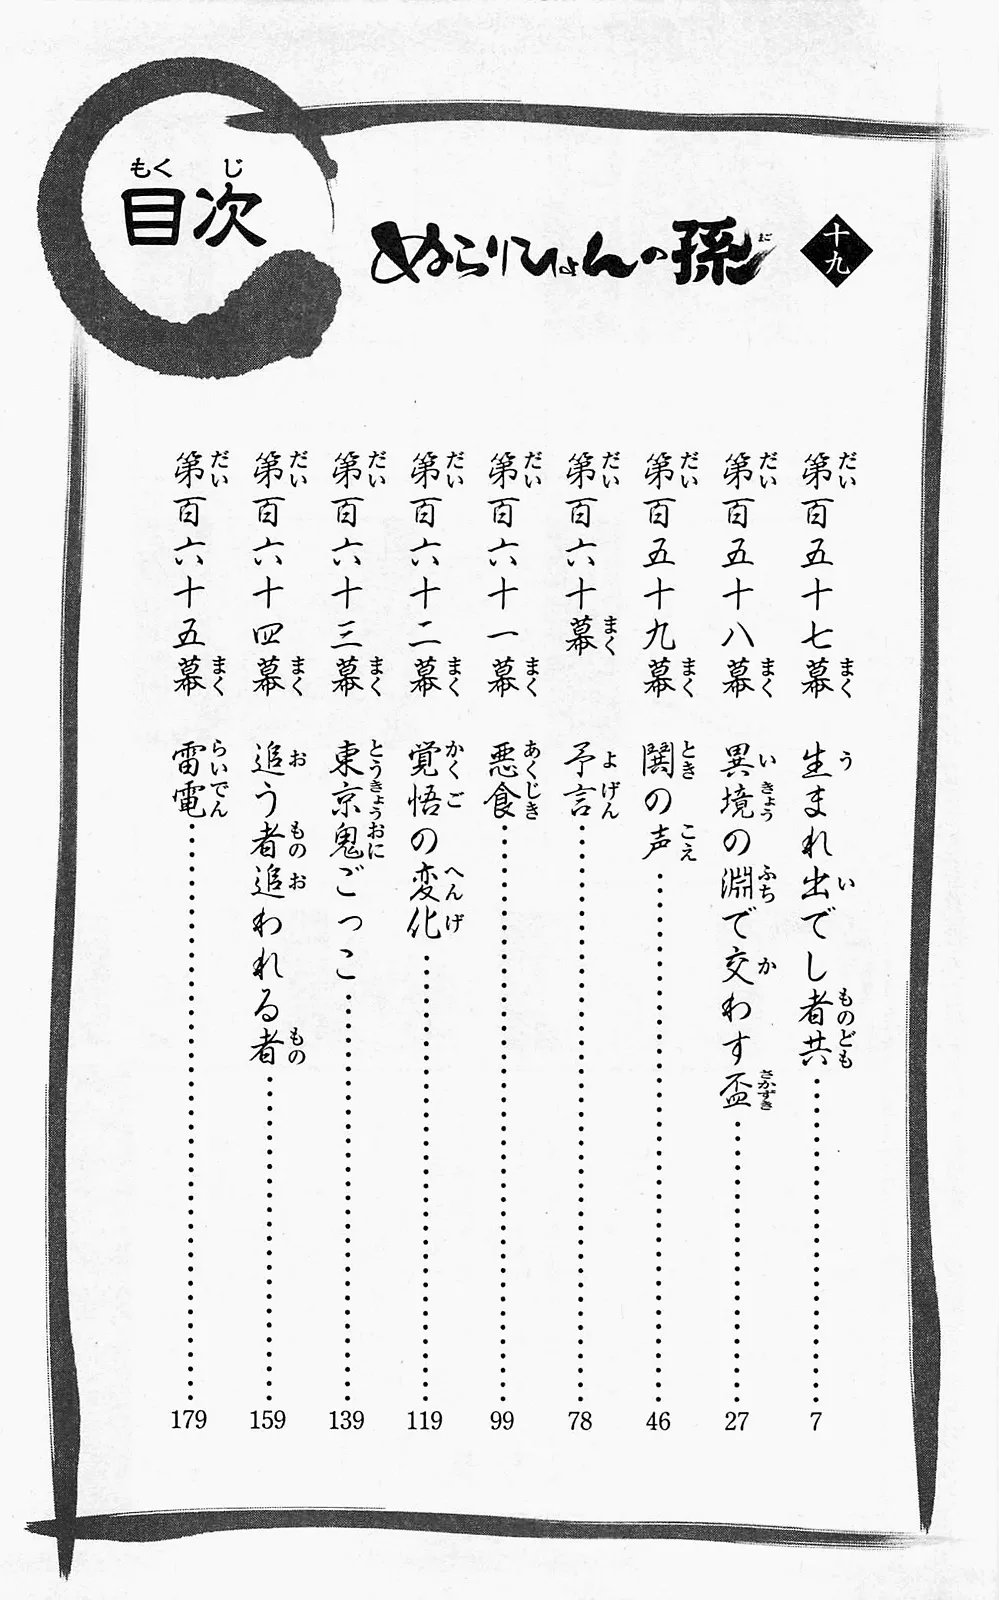 目次
もくじ
ぬらりひょんの孫
まご
十九
第百五十七幕 生まれ出でし者共 7
だい まく う い ものども
第百五十八幕 異境の淵で交わす盃 27
だい まく いきょう ふち か さかずき
第百五十九幕 鬨の声 46
だい まく とき こえ
第百六十幕 予言 78
だい まく よげん
第百六十一幕 悪食 99
だい まく あくじき
第百六十二幕 覚悟の変化 119
だい まく かくご へんげ
第百六十三幕 東京鬼ごっこ 139
だい まく とうきょうおに
第百六十四幕 追う者追われる者 159
だい まく お もの お もの
第百六十五幕 雷電 179
だい まく らいでん